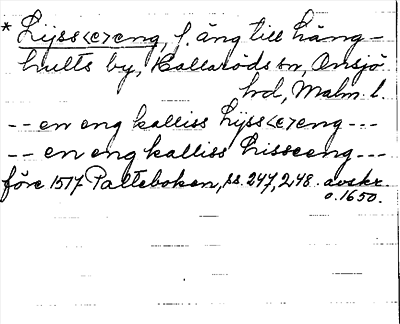 * Lijss<e>eng, f. äng till Häng-
hults by, Kallaröds sn, Onsjö
hd, Malm. l.
-- en eng kalliss Lijss<e>eng ---
-- en eng kalliss Lisseeng ---
före 1517 Palteboken, ss. 247, 248. avskr.
o. 1650.